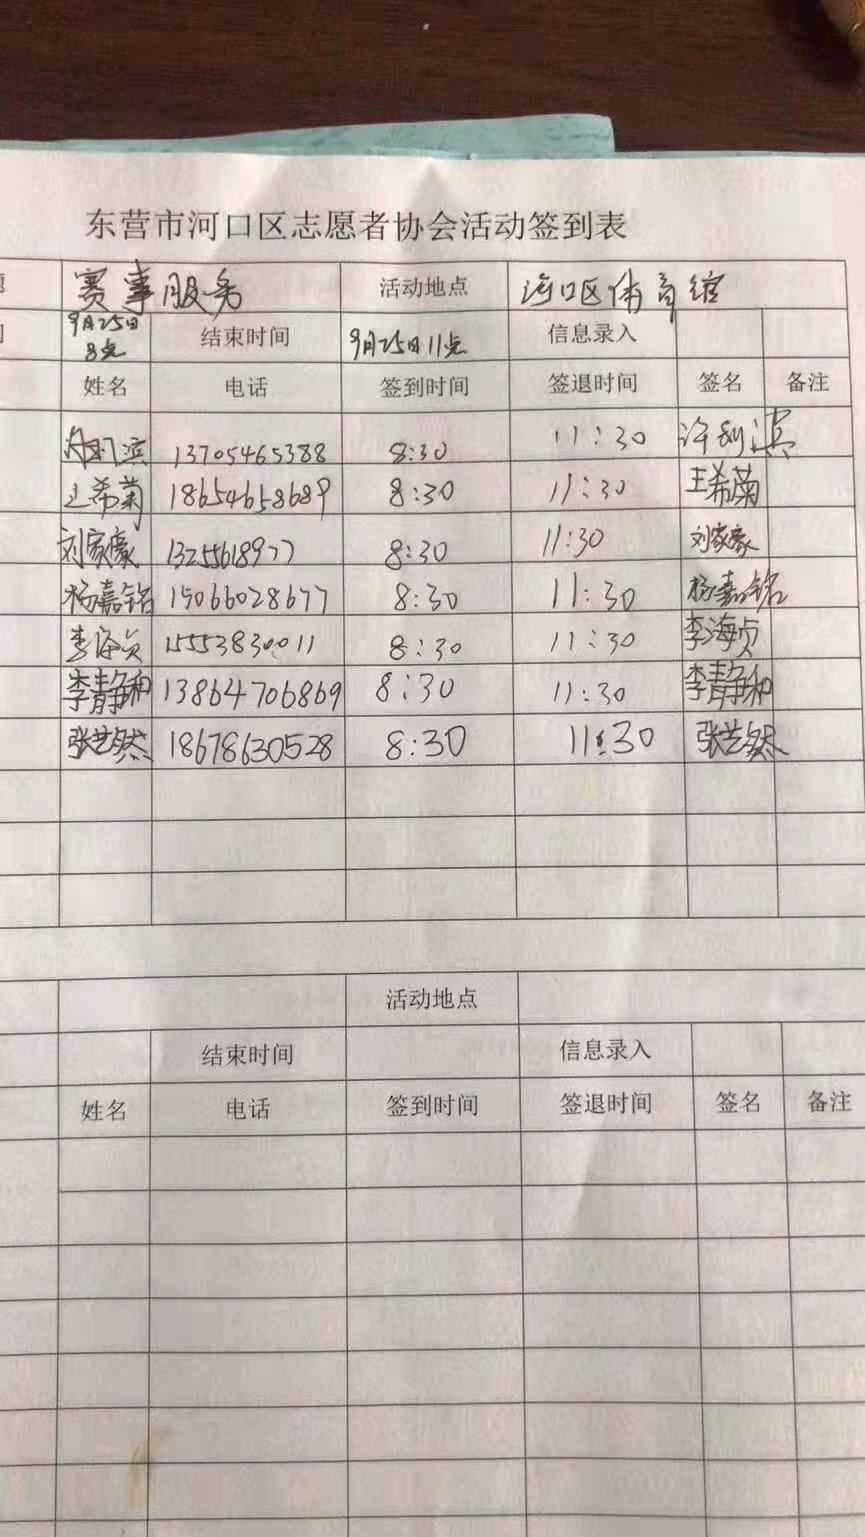 东营市河口区志愿者协会活动签到表
赛事服务 活动地点 河口区体育馆
9月25日8点 结束时间 9月25日11点 信息录入
姓名 电话 签到时间 签退时间 签名 备注
13705465388 8:30 11:30
王希菊 18654658689 8:30 11:30 王希菊
刘家豪 13255618977 8:30 11:30 刘家豪
杨嘉铭 15066028677 8:30 11:30 杨嘉铭
李海贞 15553830011 8:30 11:30 李海贞
李静和 13864706869 8:30 11:30 李静和
张艺然 18678630528 8:30 11:30 张艺然
活动地点
结束时间 信息录入
姓名 电话 签到时间 签退时间 签名 备注